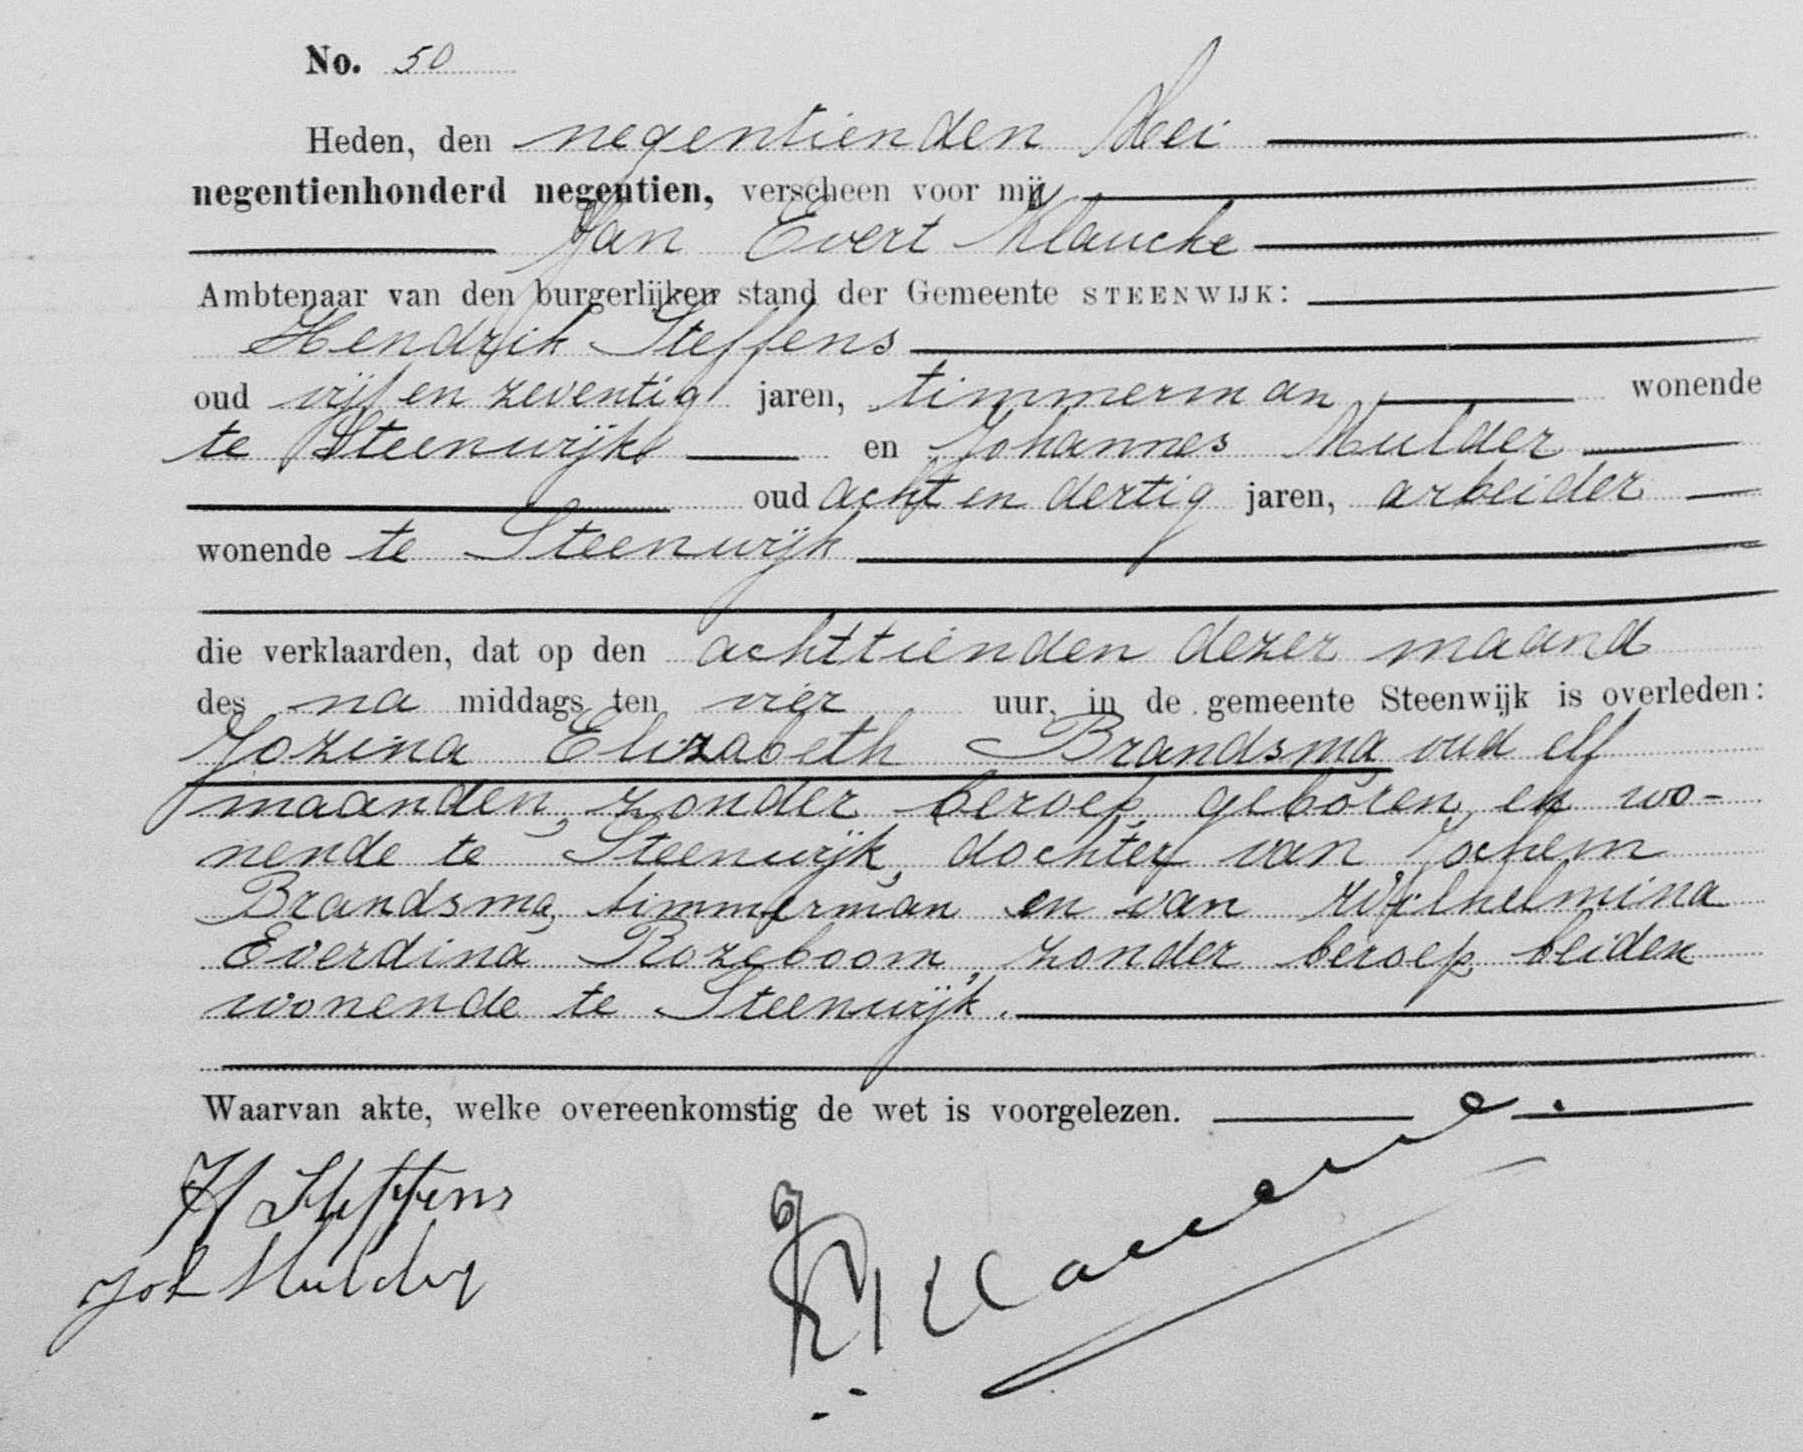 No. 50
Heden, den negentienden Mei
negentienhonderd negentien, verscheen voor mij
Jan Evert Klaucke
Ambtenaar van den burgerlijken stand der Gemeente STEENWIJK:
Hendrik Steffens
oud vijf en zeventig jaren, timmerman wonende
te Steenwijk en Johannes Mulder
oud acht en dertig jaren, arbeider
wonende te Steenwijk
die verklaarden, dat op den achttienden dezer maand
des na middags ten vier uur, in de gemeente Steenwijk is overleden:
Jozina Elizabeth Brandsma oud elf
maanden, zonder beroep, geboren en wo-
nende te Steenwijk, dochter van Jochem
Brandsma, timmerman en van Wilhelmina
Everdina Rozeboom, zonder beroep beiden
wonende te Steenwijk.
Waarvan akte, welke overeenkomstig de wet is voorgelezen.
H Steffens
Joh Mulder